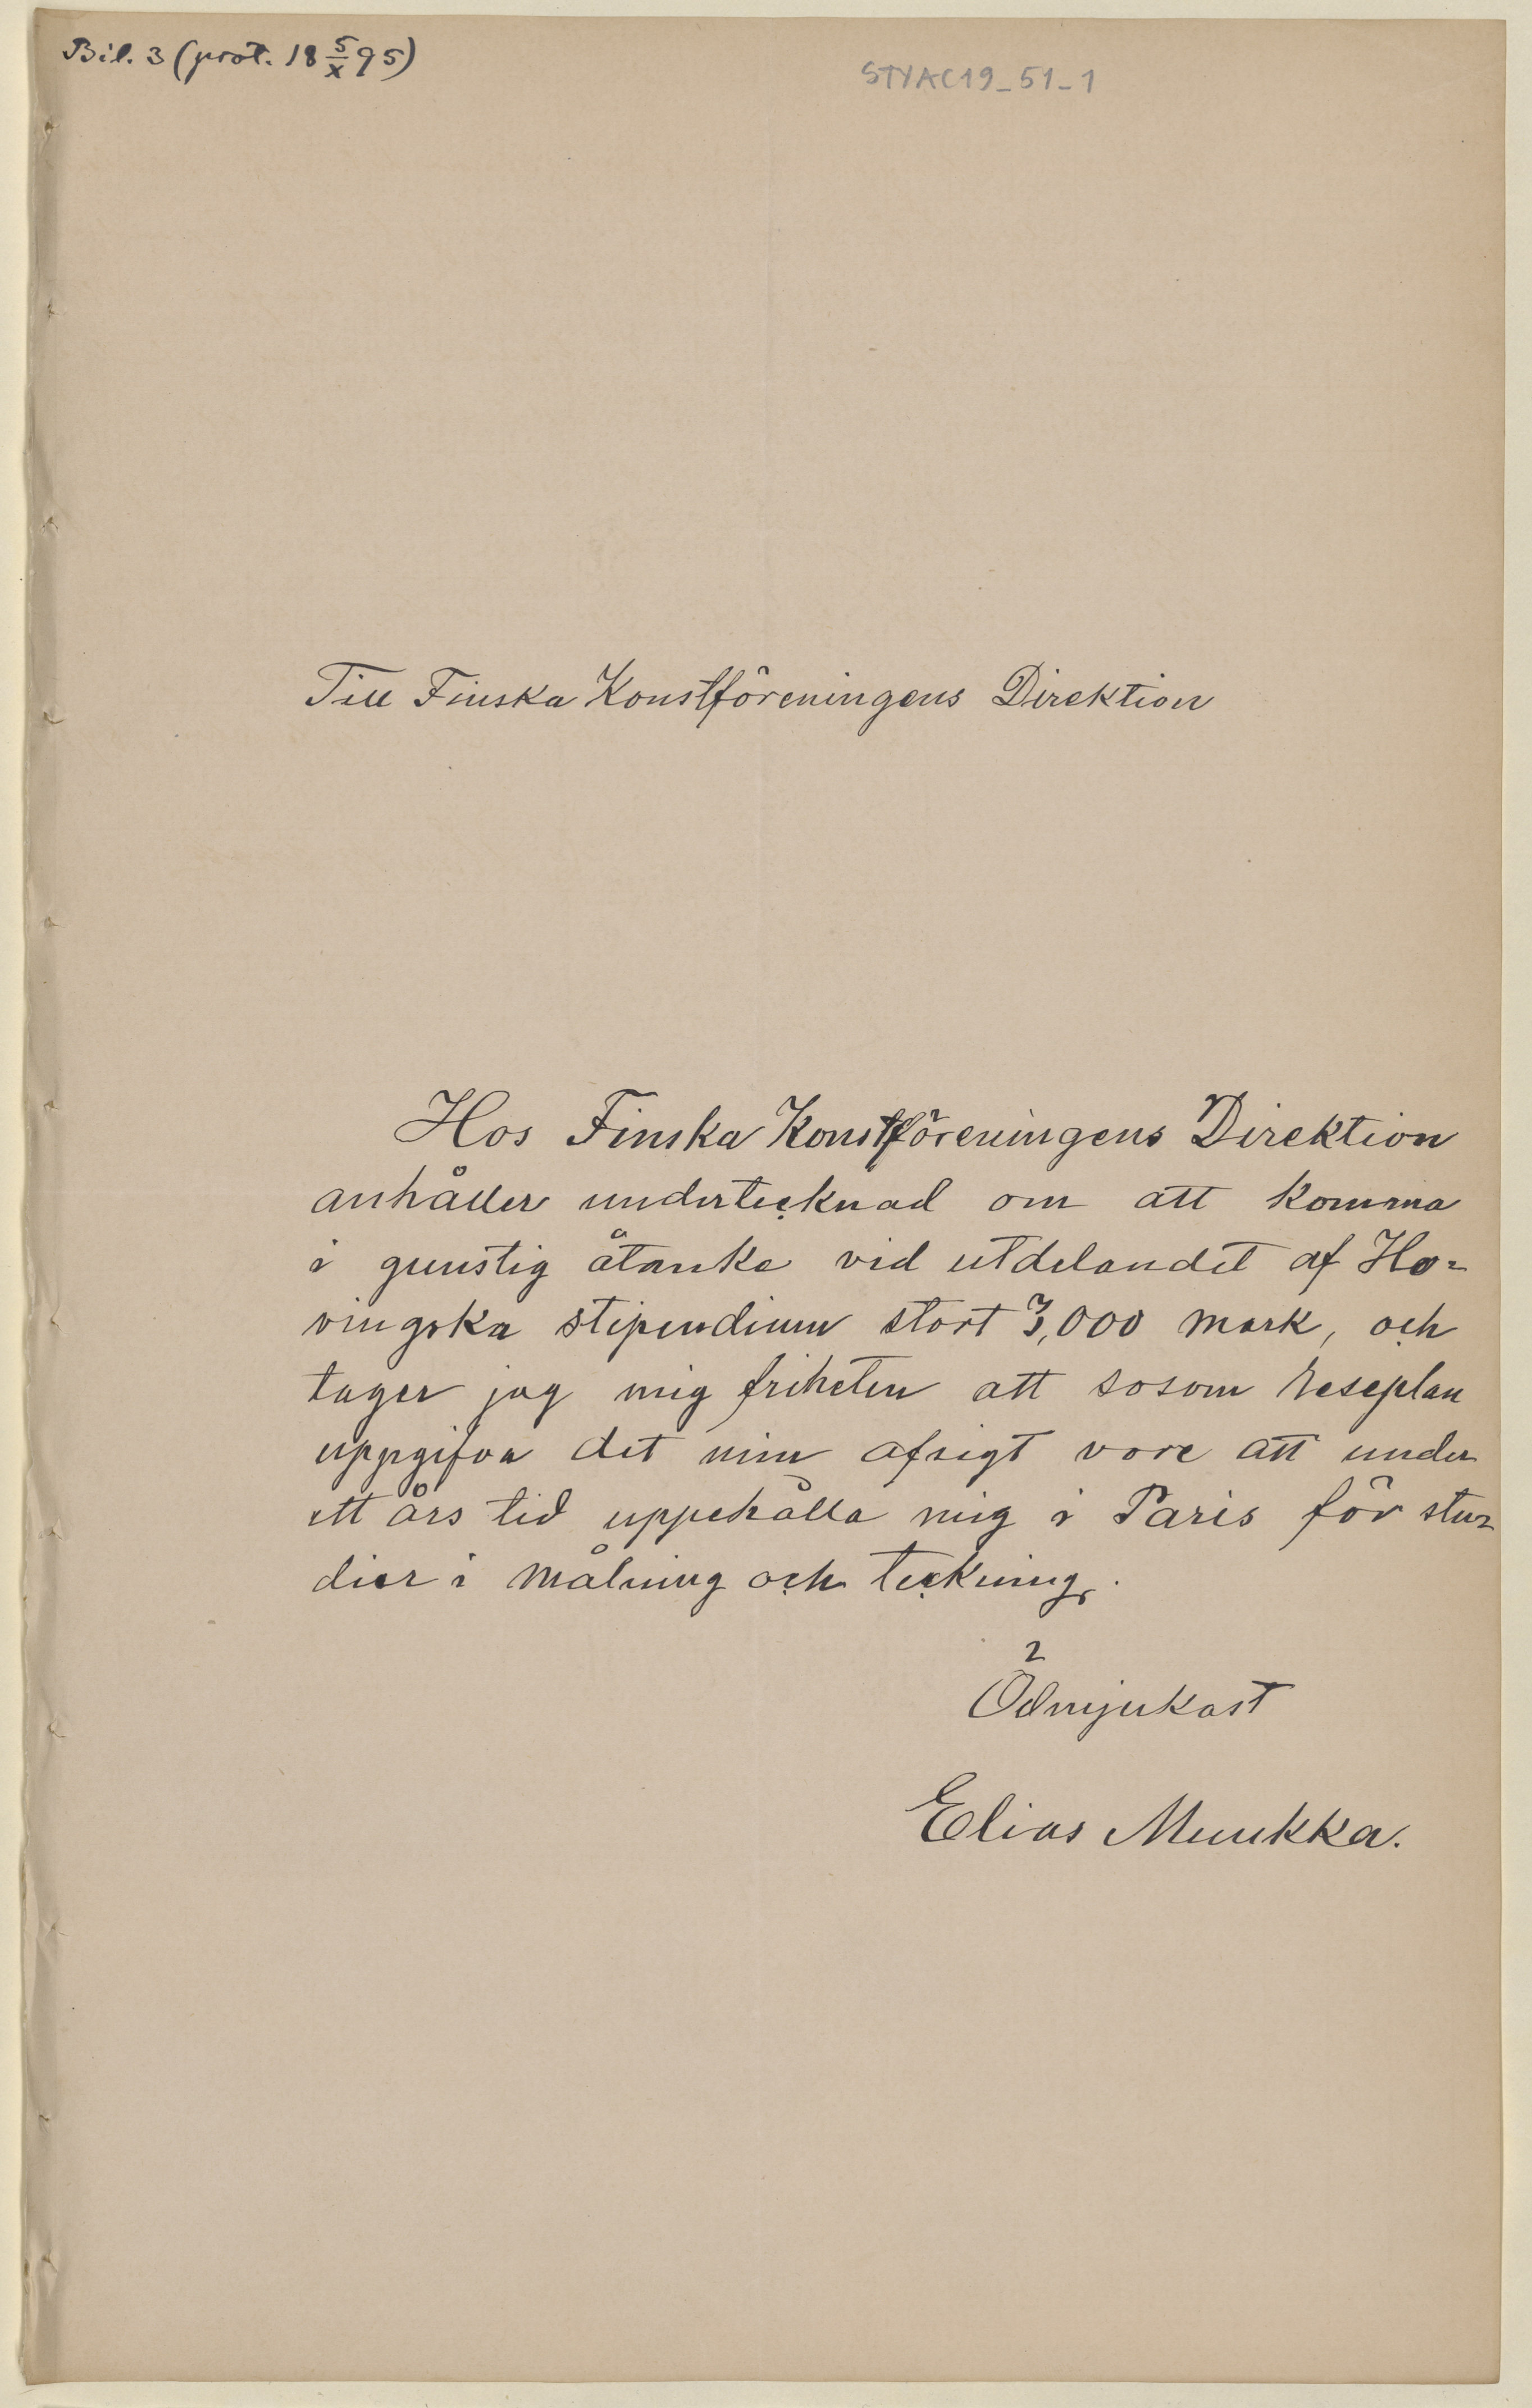 Bil. 3 (prot. 18 5/X 95)
STYAC19_51_1
Till Finska Konstföreningens Direktion
Hos Finska Konstföreningens Direktion
anhåller undertecknad om att komma
i gunstig åtanke vid utdelandet af Ho=
vingska stipendium stort 3,000 mark, och
tager jag mig friheten att sosom reseplan
uppgifva det min afsigt vore att under
ett års tid uppehålla mig i Paris för stu=
dier i målning och teckning.
Ödmjukast
Elias Muukka.